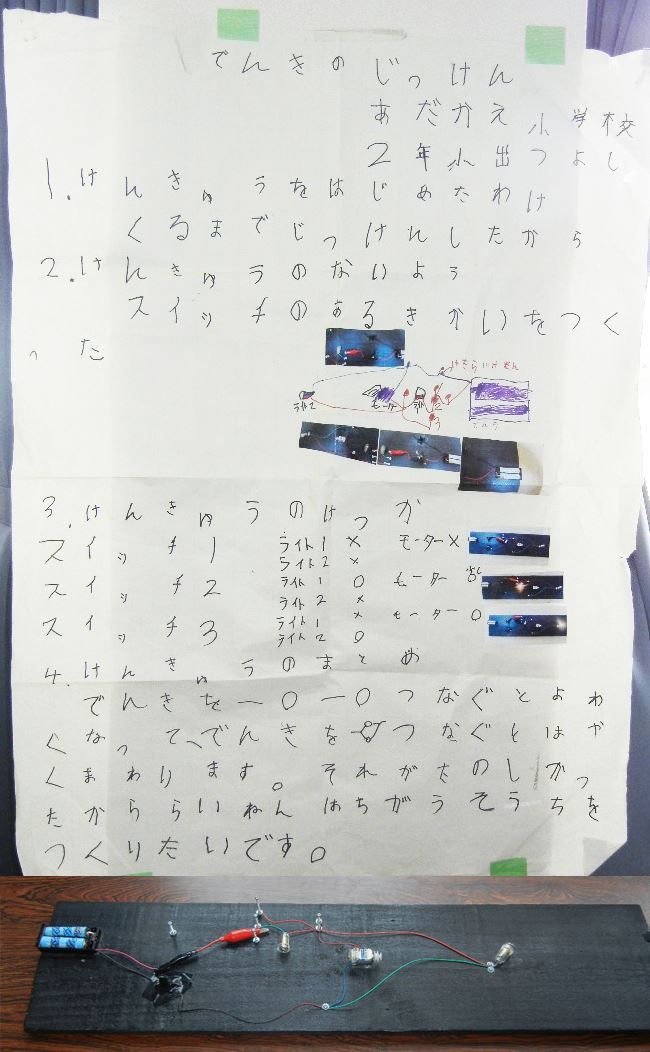 でんきのじっけん
あだかえ小学校
2年小出つよし
1.けんきゅうをはじめたわけ
くるまでじっけんしたから
2.けんきゅうのないよう
スイッチのあるきかいをつく
った
ライト2 モーター
3.けんきゅうのけっか
スイッチ1 ライト1 × モーター×
ライト2 ×
スイッチ2 ライト1 〇 モーター
ライト2 ×
スイッチ3 ライト1 × モーター〇
ライト2 〇
4.けんきゅうのまとめ
でんきを―〇―〇つなぐとよわ
くなって、でんきをつなぐとはや
くまわります。それがたのしかっ
たかららいねんはちがうそうちを
つくりたいです。